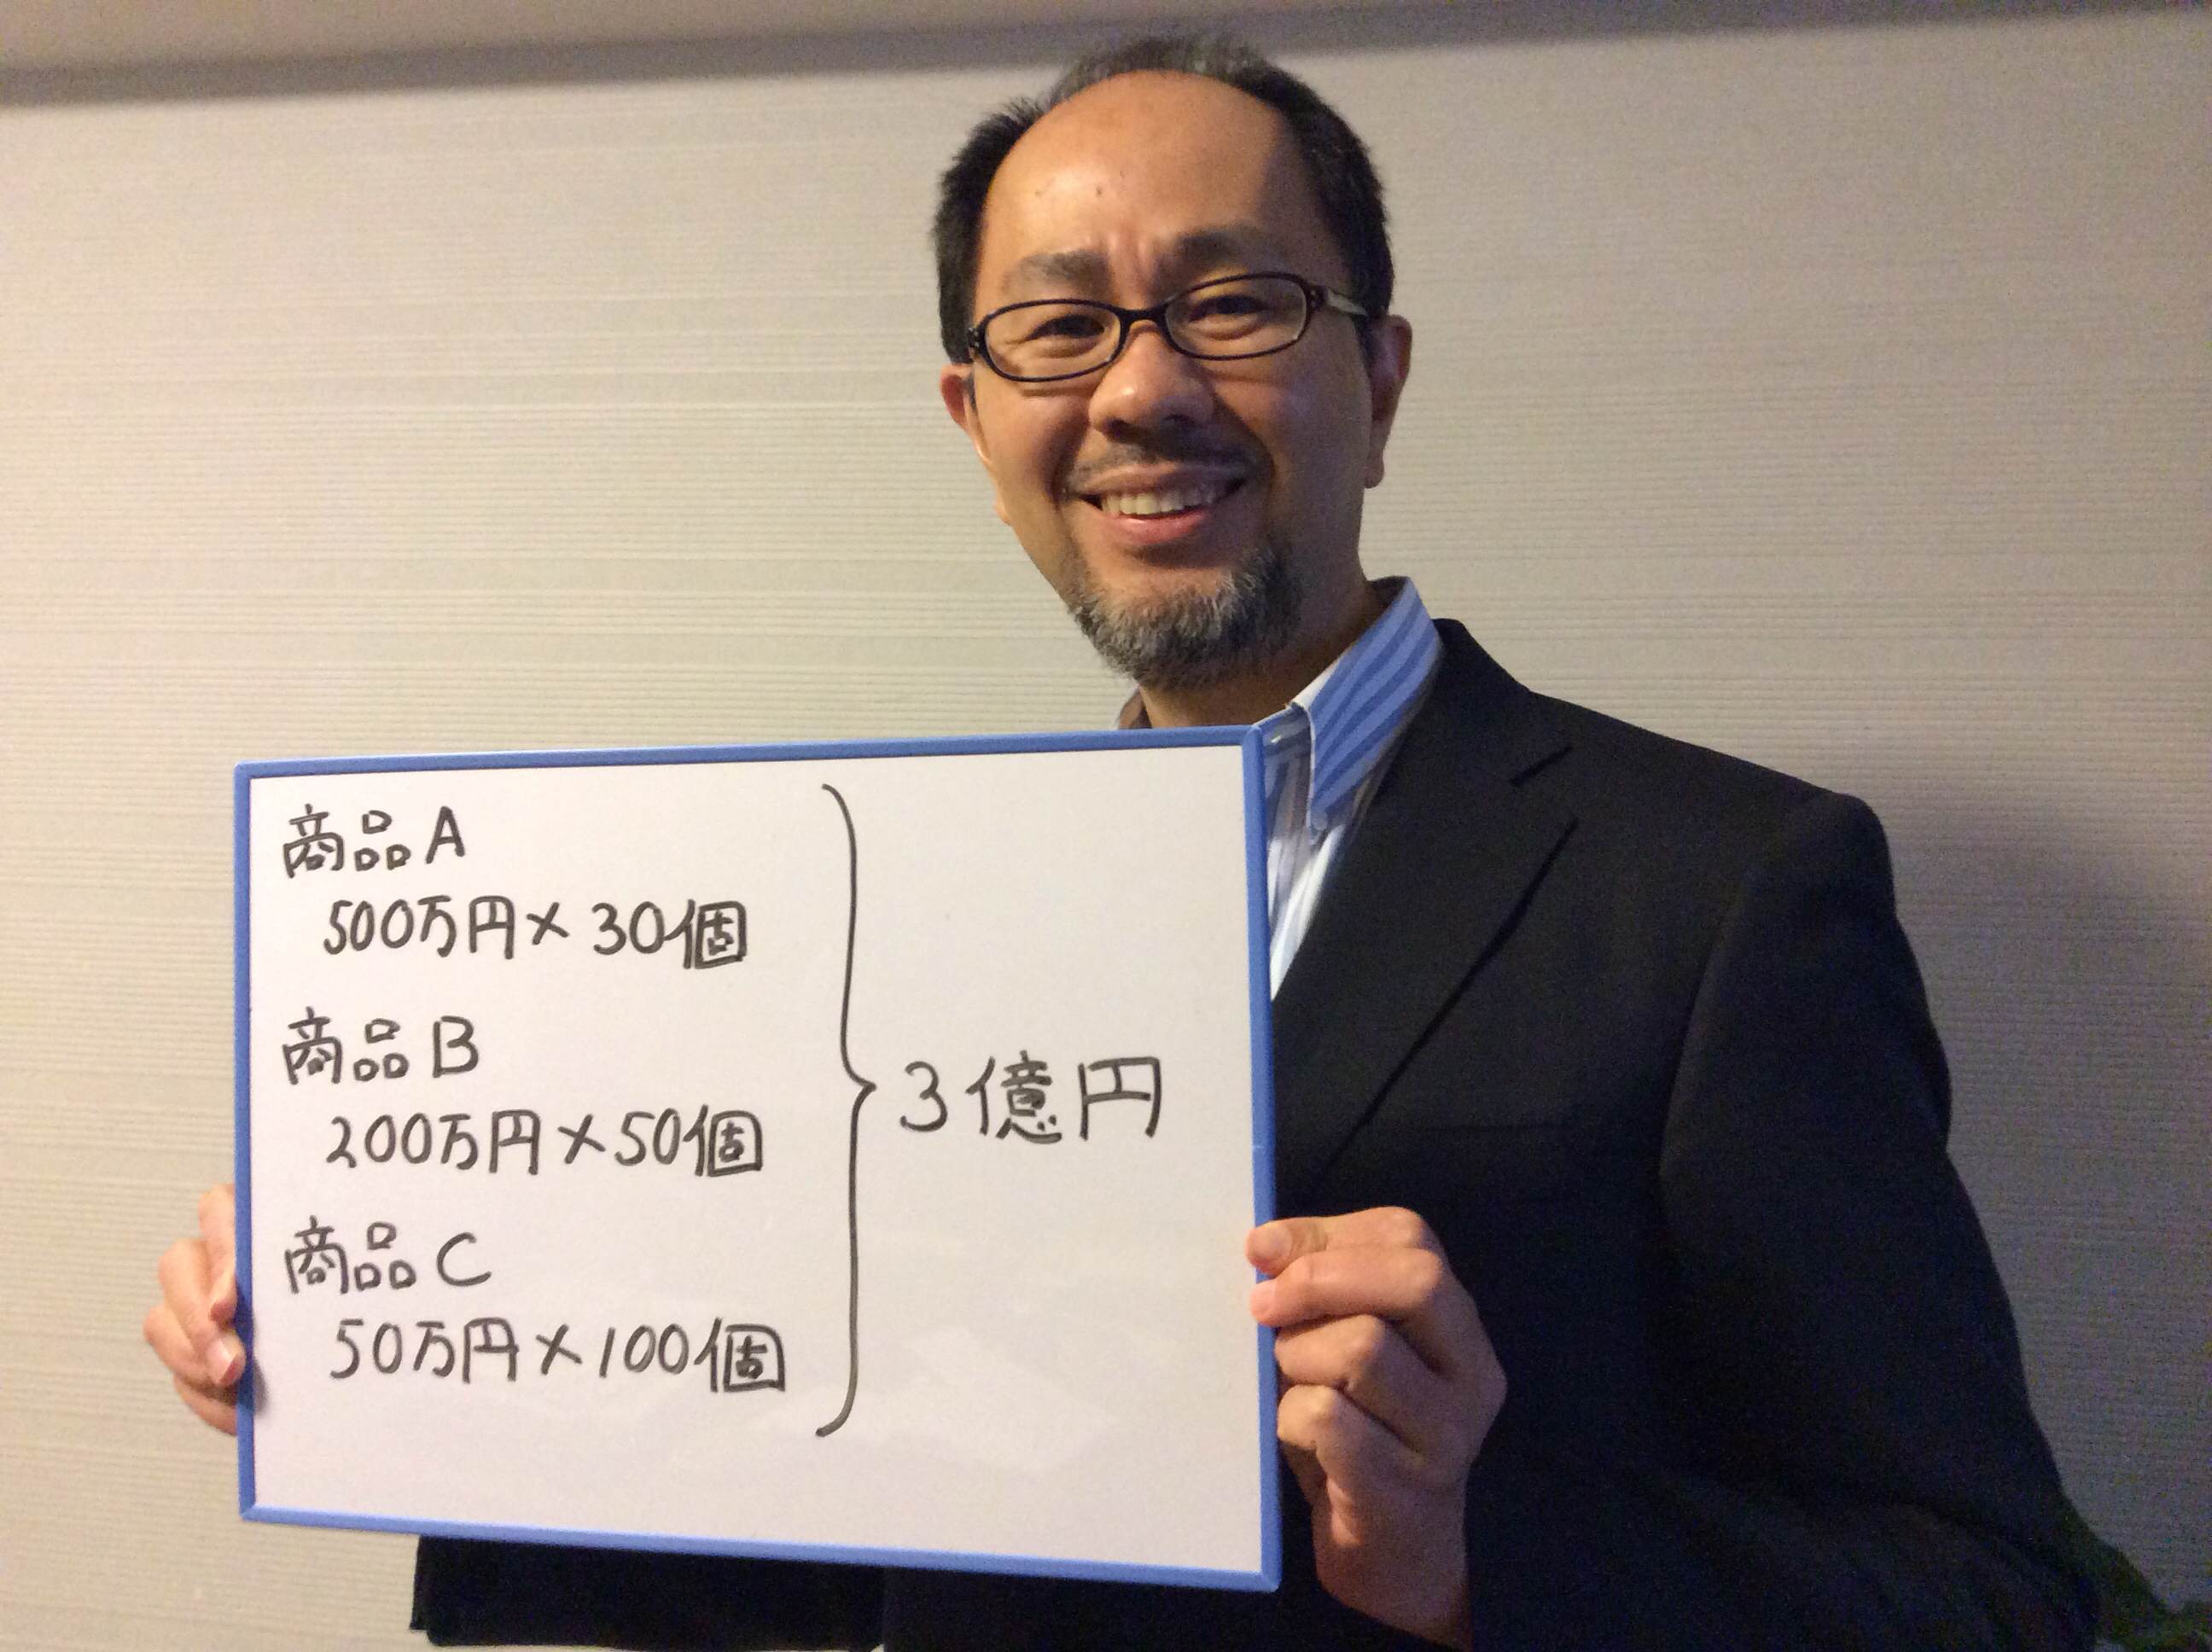 商品A
500万円×30個
商品B
200万円×50個
商品C
50万円×100個
3億円